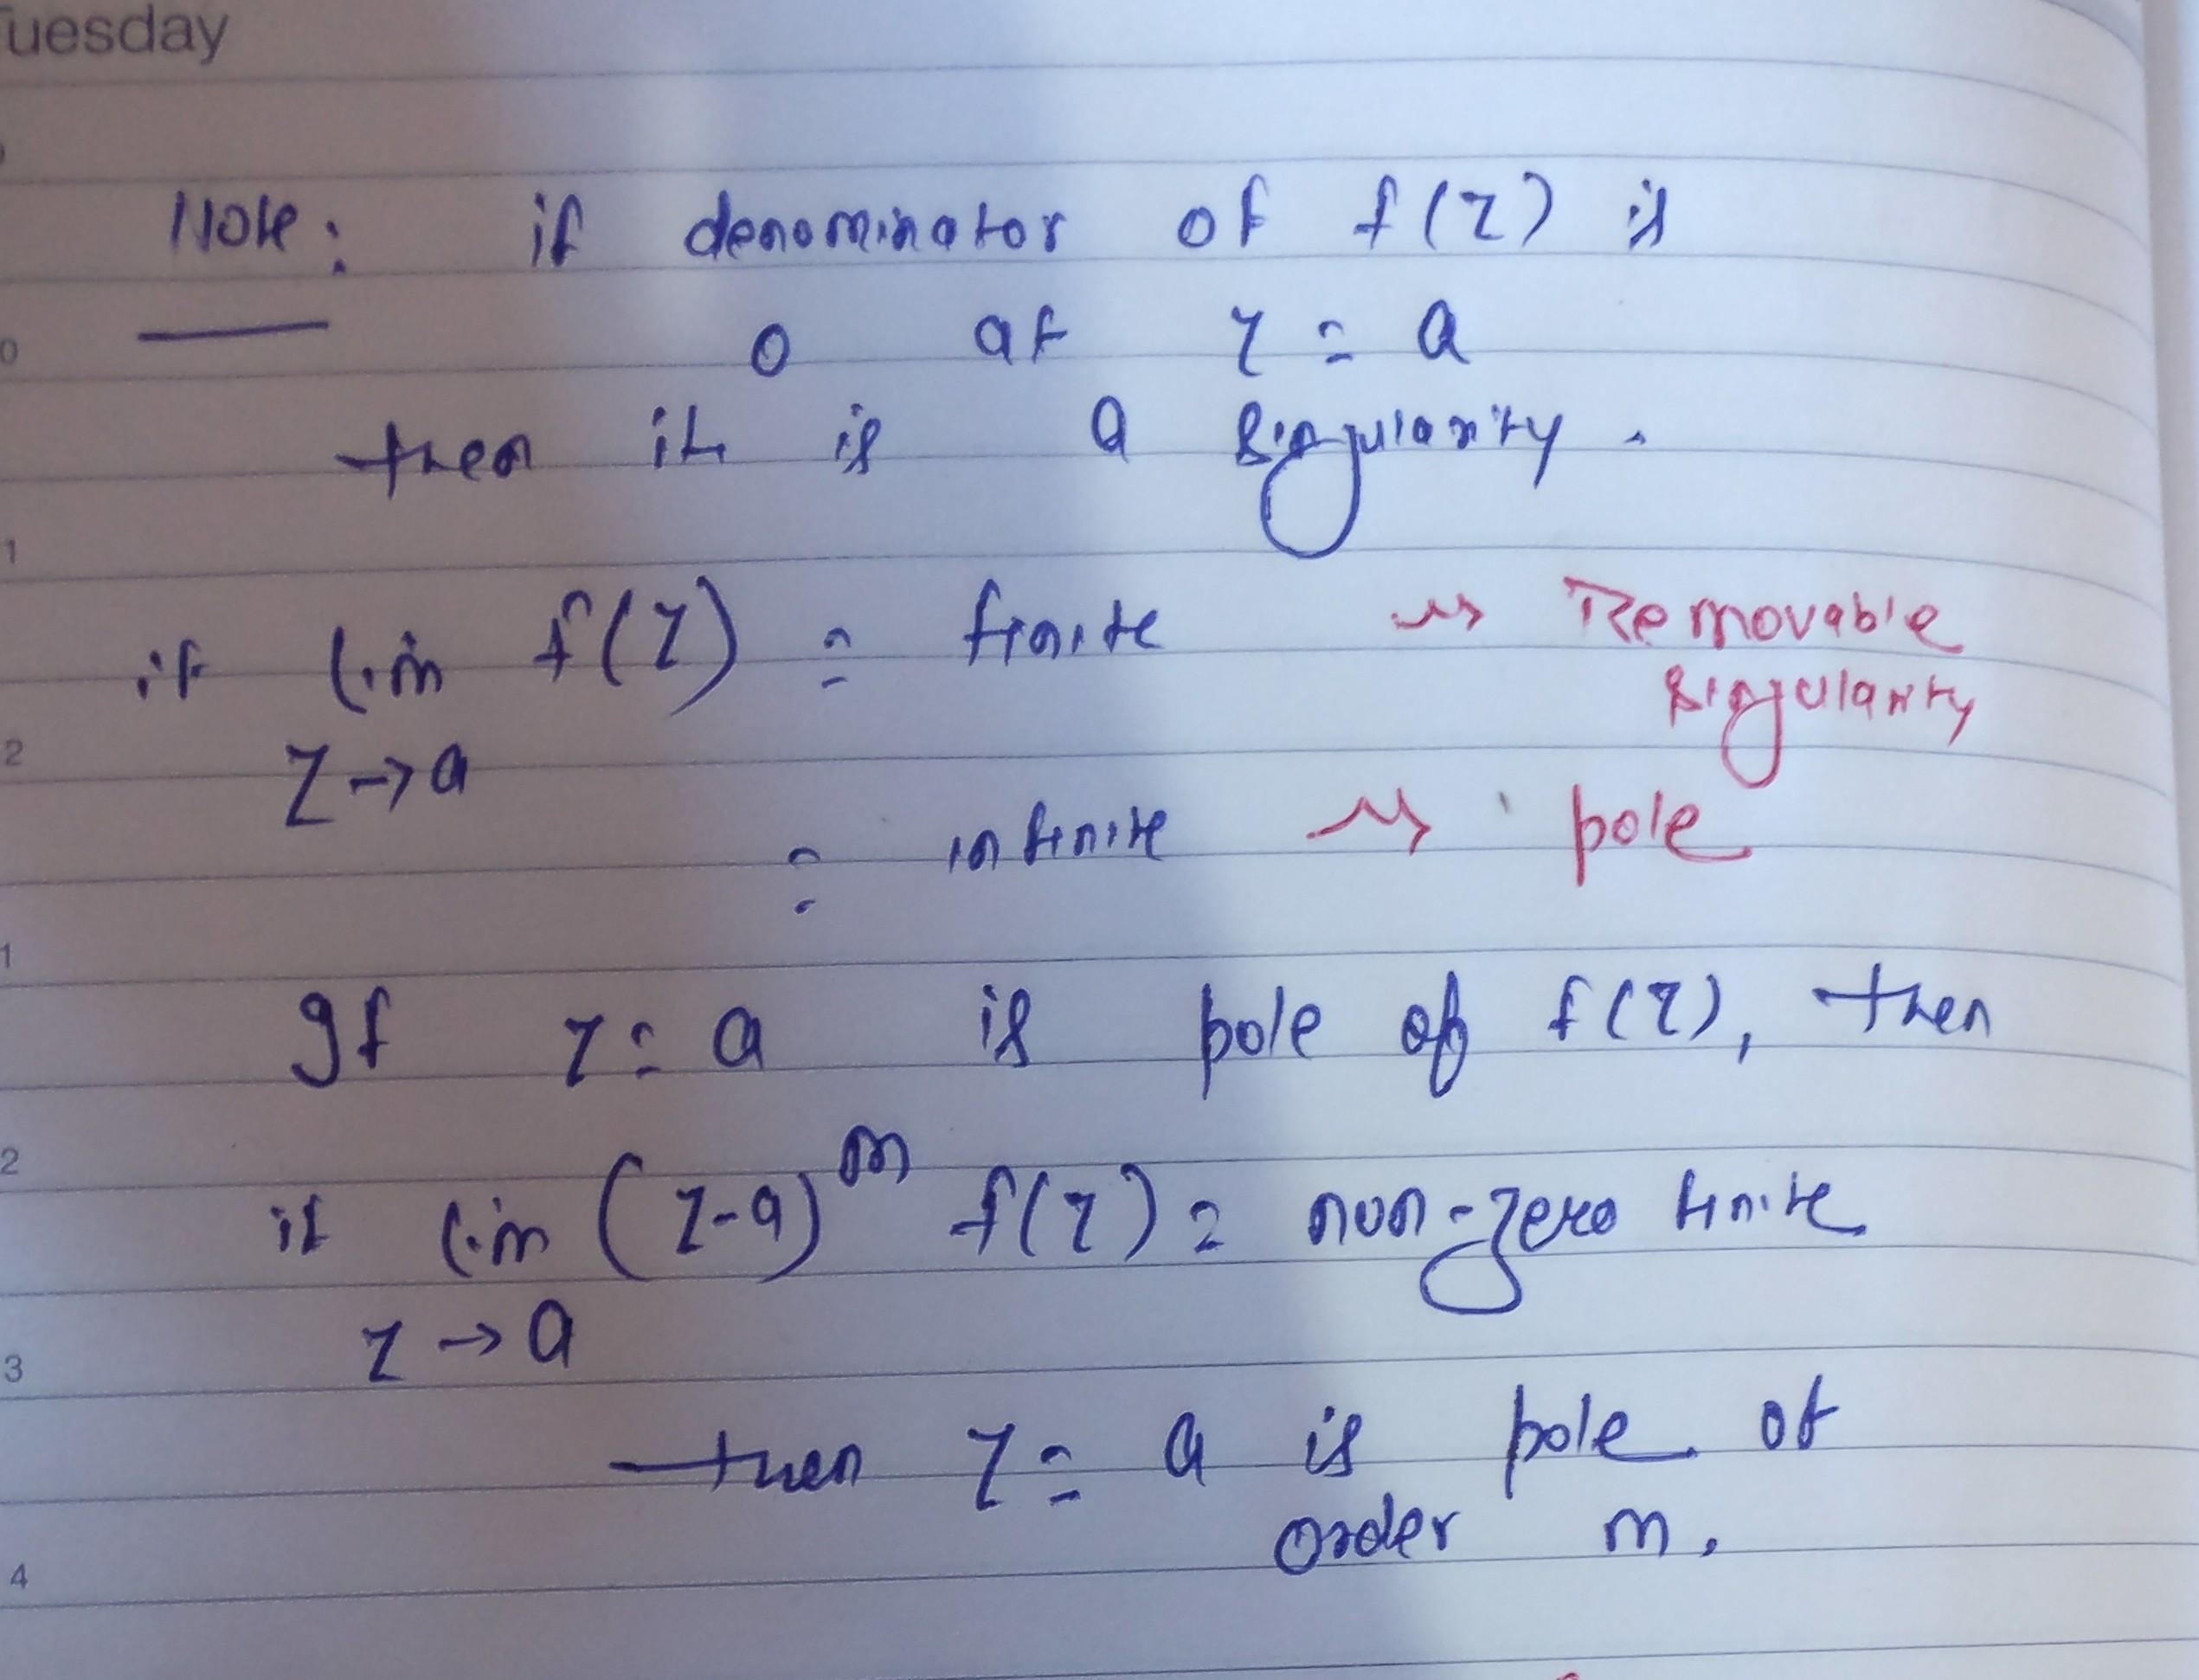 Tuesday
Note: if denominator of f(z) is
0 at z = a
then it is a singularity.
if lim f(z) = finite ⇝ Removable
singularity
z→a
= infinite ⇝ pole
If z = a is pole of f(z), then
if lim (z-a)^m f(z) = non-zero finite
z → a
then z = a is pole of
order m.
0
1
2
1
2
3
4